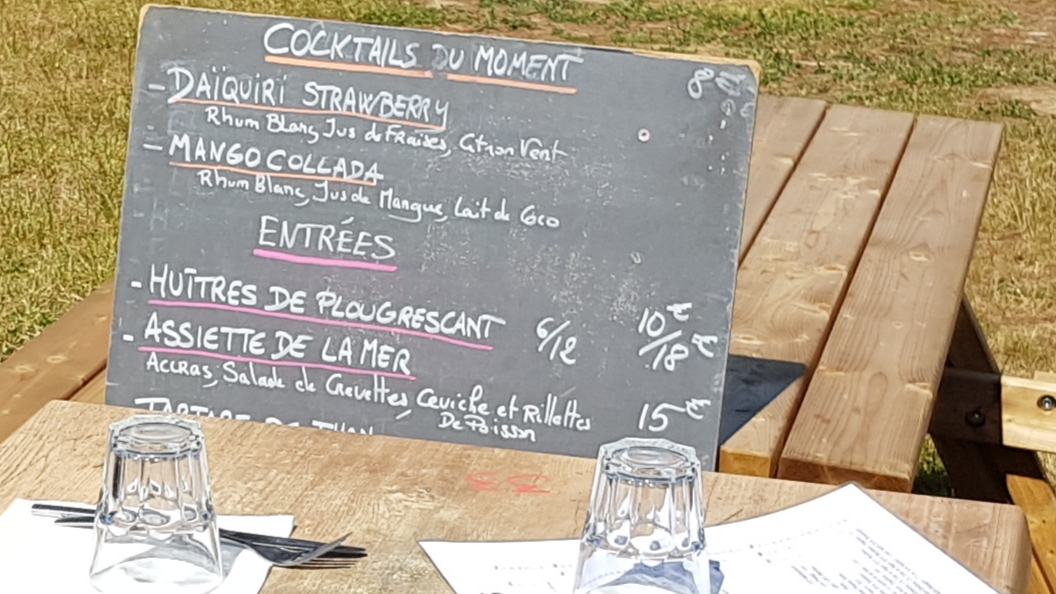 COCKTAILS DU MOMENT
8€
- DAÏQUIRI STRAWBERRY
Rhum Blanc, Jus de Fraises, Citron Vert
- MANGO COLLADA
Rhum Blanc, Jus de Mangue, Lait de Coco
ENTRÉES
- HUÎTRES DE PLOUGRESCANT 6/12 10€/18€
- ASSIETTE DE LA MER
Accras, Salade de Crevettes, Ceviche et Rillettes 15€
De Poisson
TARTARE DE THON